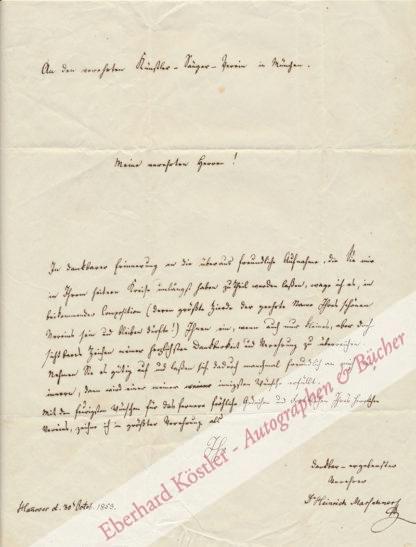 An den verehrten Künstler-Sänger-Verein in München.
Meine verehrten Herren!
In dankbarer Erinnerung an die überaus freundliche Aufnahme, die Sie mir
in Ihrem heitern Kreise unlängst haben zu Theil werden laßen, wage ich es, in
beikommender Composition (deren größte Zierde der geehrte Name Ihres schönen
Vereins sein und bleiben dürfte!) Ihnen ein, wenn auch nur kleines, aber doch
sichtbares Zeichen meiner herzlichsten Dankbarkeit und Verehrung zu überreichen
Nehmen Sie es gütig auf und laßen sich dadurch manchmal freundlich an
innern, dann wird einer meiner innigsten Wünsche erfüllt.
Mit den feurigsten Wünschen für das fernere fröhliche Gedeihen
Vereins, zeichne ich in größter Verehrung als
Ihr
dankbar-ergebenster
Verehrer
Dr Heinrich Marschner
Hannover d. 30t Octob. 1853.
Eberhard Köstler - Autographen & Bücher